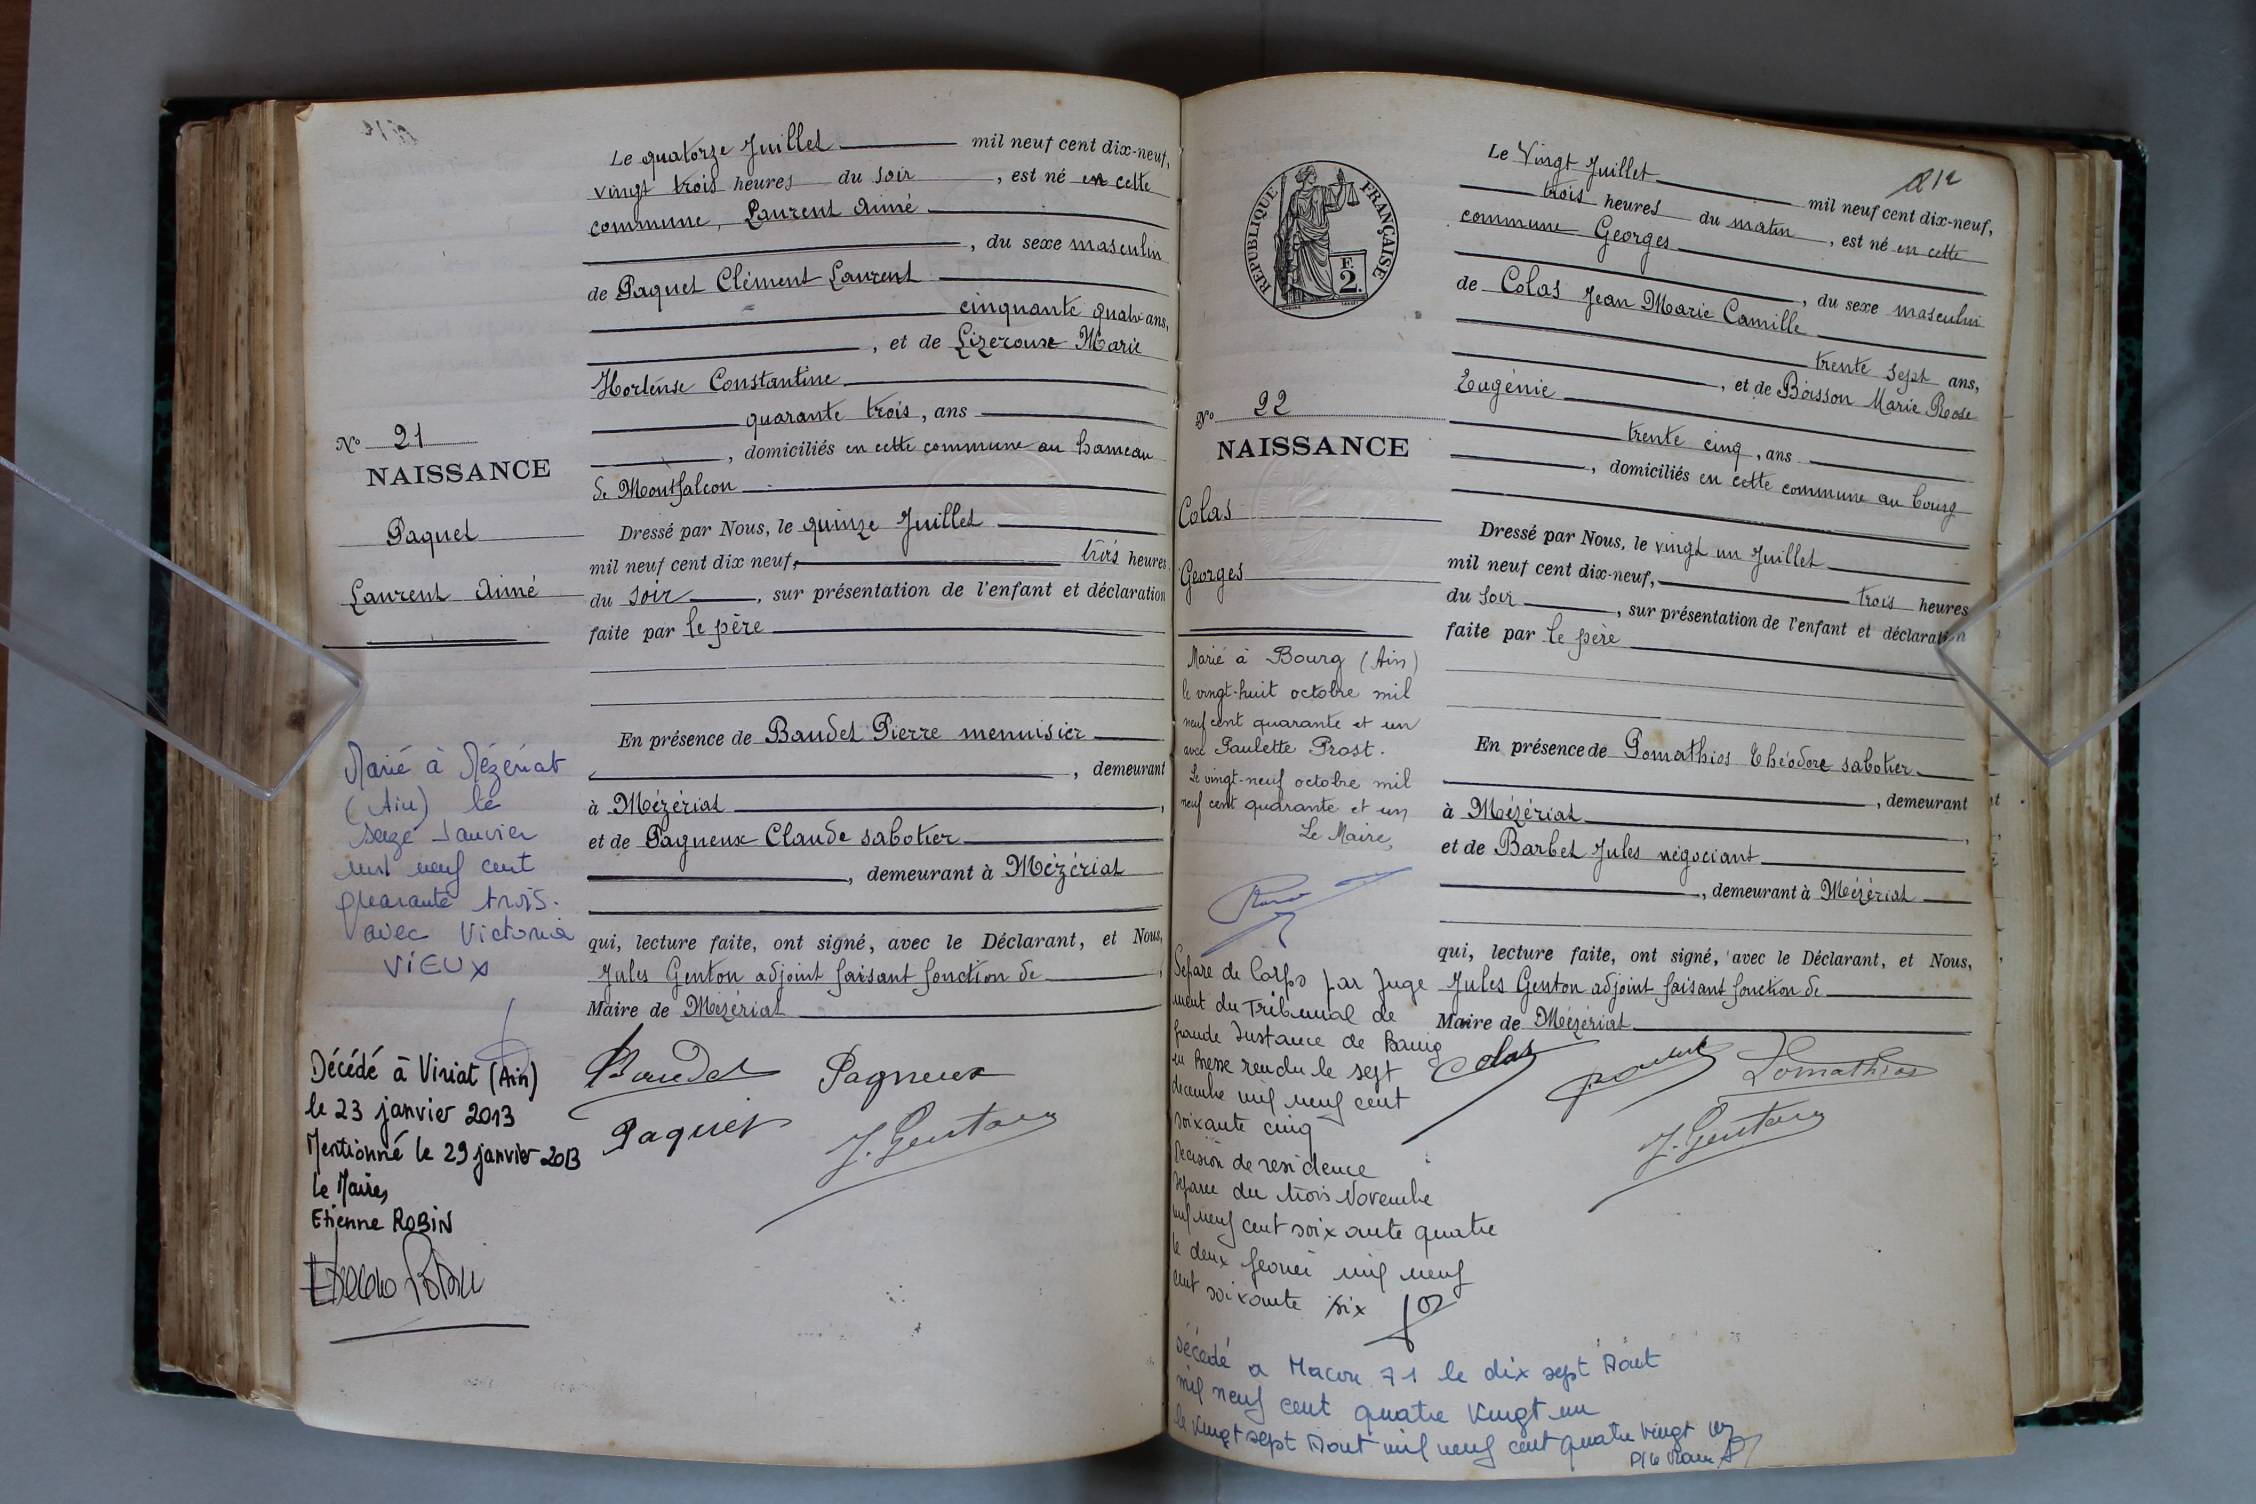 Le quatorze Juillet mil neuf cent dix-neuf,
vingt trois heures du soir, est né en cette
commune, Laurent Aimé
, du sexe masculin
de Paquet Clément Laurent
cinquante quatre ans,
, et de Lizeroux Marie
Hortense Constantine
quarante trois, ans
, domiciliés en cette commune au hameau
de Montfalcon
No 21
NAISSANCE
Paquet
Laurent Aimé
Dressé par Nous, le quinze Juillet
mil neuf cent dix neuf, trois heures
du soir, sur présentation de l'enfant et déclaration
faite par le père
En présence de Baudet Pierre menuisier
, demeurant
à Mézériat,
et de Pagneux Claude sabotier
, demeurant à Mézériat
qui, lecture faite, ont signé, avec le Déclarant, et Nous,
Jules Genton adjoint faisant fonction de,
Maire de Mézériat
Baudet Pagneux
Paquet J. Genton
Marié à Mézériat
(Ain) le
seize Janvier
mil neuf cent
quarante trois.
avec Victoria
VIEUX
Décédé à Viriat (Ain)
le 23 janvier 2013
Mentionné le 29 janvier 2013
le Maire,
Etienne ROBIN
212
RÉPUBLIQUE FRANÇAISE
F.
2.
Le Vingt Juillet mil neuf cent dix-neuf,
trois heures du matin, est né en cette
commune Georges
, du sexe masculin
de Colas Jean Marie Camille
trente sept ans,
, et de Boisson Marie Rose
Eugénie
trente cinq, ans
, domiciliés en cette commune au bourg
No 22
NAISSANCE
Colas
Georges
Dressé par Nous, le vingt un Juillet
mil neuf cent dix-neuf, trois heures
du soir, sur présentation de l'enfant et déclaration
faite par le père
En présence de Pomathios Théodore sabotier
, demeurant
à Mézériat,
et de Barbet Jules négociant
, demeurant à Mézériat
qui, lecture faite, ont signé, avec le Déclarant, et Nous,
Jules Genton adjoint faisant fonction de
Maire de Mézériat
Colas Pomathios
J. Genton
Marié à Bourg (Ain)
le vingt-huit octobre mil
neuf cent quarante et un
avec Paulette Prost.
Le vingt-neuf octobre mil
neuf cent quarante et un
Le Maire,
Séparé de Corps par Juge
ment du Tribunal de
Grande Instance de Bourg
en Bresse rendu le sept
décembre mil neuf cent
soixante cinq
Décision de résidence
séparée du trois Novembre
mil neuf cent soixante quatre
le deux février mil neuf
cent soixante six
Décédé a Macon 71 le dix sept Aout
mil neuf cent quatre vingt un
le vingt sept Aout mil neuf cent quatre vingt un